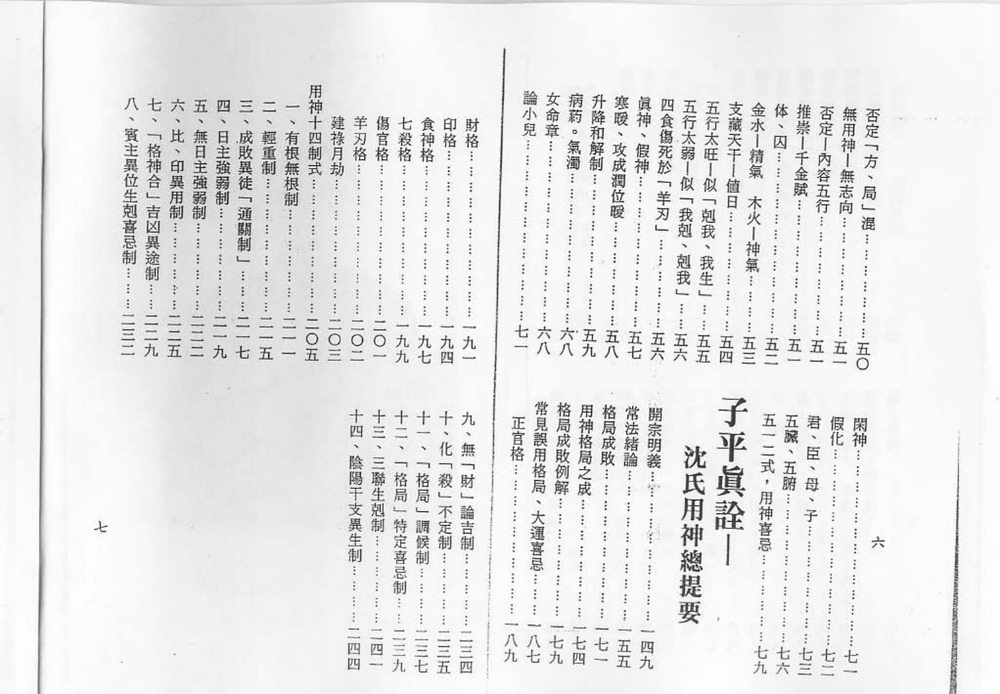 否定「方、局」混……………五〇
無用神—無志向……………五一
否定—內容五行……………五一
推崇—千金賦……………五一
体、囚……………五二
金水—精氣 木火—神氣……………五三
支藏天干—値日……………五四
五行太旺—似「剋我、我生」……………五五
五行太弱—似「我剋、剋我」……………五六
四食傷死於「羊刃」……………五六
眞神、假神……………五七
寒暖、攻成潤位暖……………五八
升降和解制……………五九
病葯。氣濁……………六八
女命章……………六八
論小兒……………七一
閑神……………七一
假化……………七二
君、臣、母、子……………七三
五臟、五腑……………七六
五一二式，用神喜忌……………七九
子平眞詮—
沈氏用神總提要
開宗明義……………一四九
常法緒論……………一五五
格局成敗……………一七一
用神格局之成……………一七四
格局成敗例解……………一七九
常見誤用格局、大運喜忌……………一八七
正官格……………一八九
六
財格……………一九一
印格……………一九四
食神格……………一九七
七殺格……………一九九
傷官格……………二〇一
羊刃格……………二〇二
建祿月劫……………二〇三
用神十四制式……………二〇五
一、有根無根制……………二一一
二、輕重制……………二一五
三、成敗異徒「通關制」……………二一七
四、日主強弱制……………二一九
五、無日主強弱制……………二二二
六、比、印異用制……………二二五
七、「格神合」吉凶異途制……………二二九
八、賓主異位生剋喜忌制……………二三二
九、無「財」論吉制……………二三四
十、化「殺」不定制……………二三五
十一、「格局」調候制……………二三七
十二、「格局」特定喜忌制……………二三九
十三、三聯生剋制……………二四一
十四、陰陽干支異生制……………二四四
七